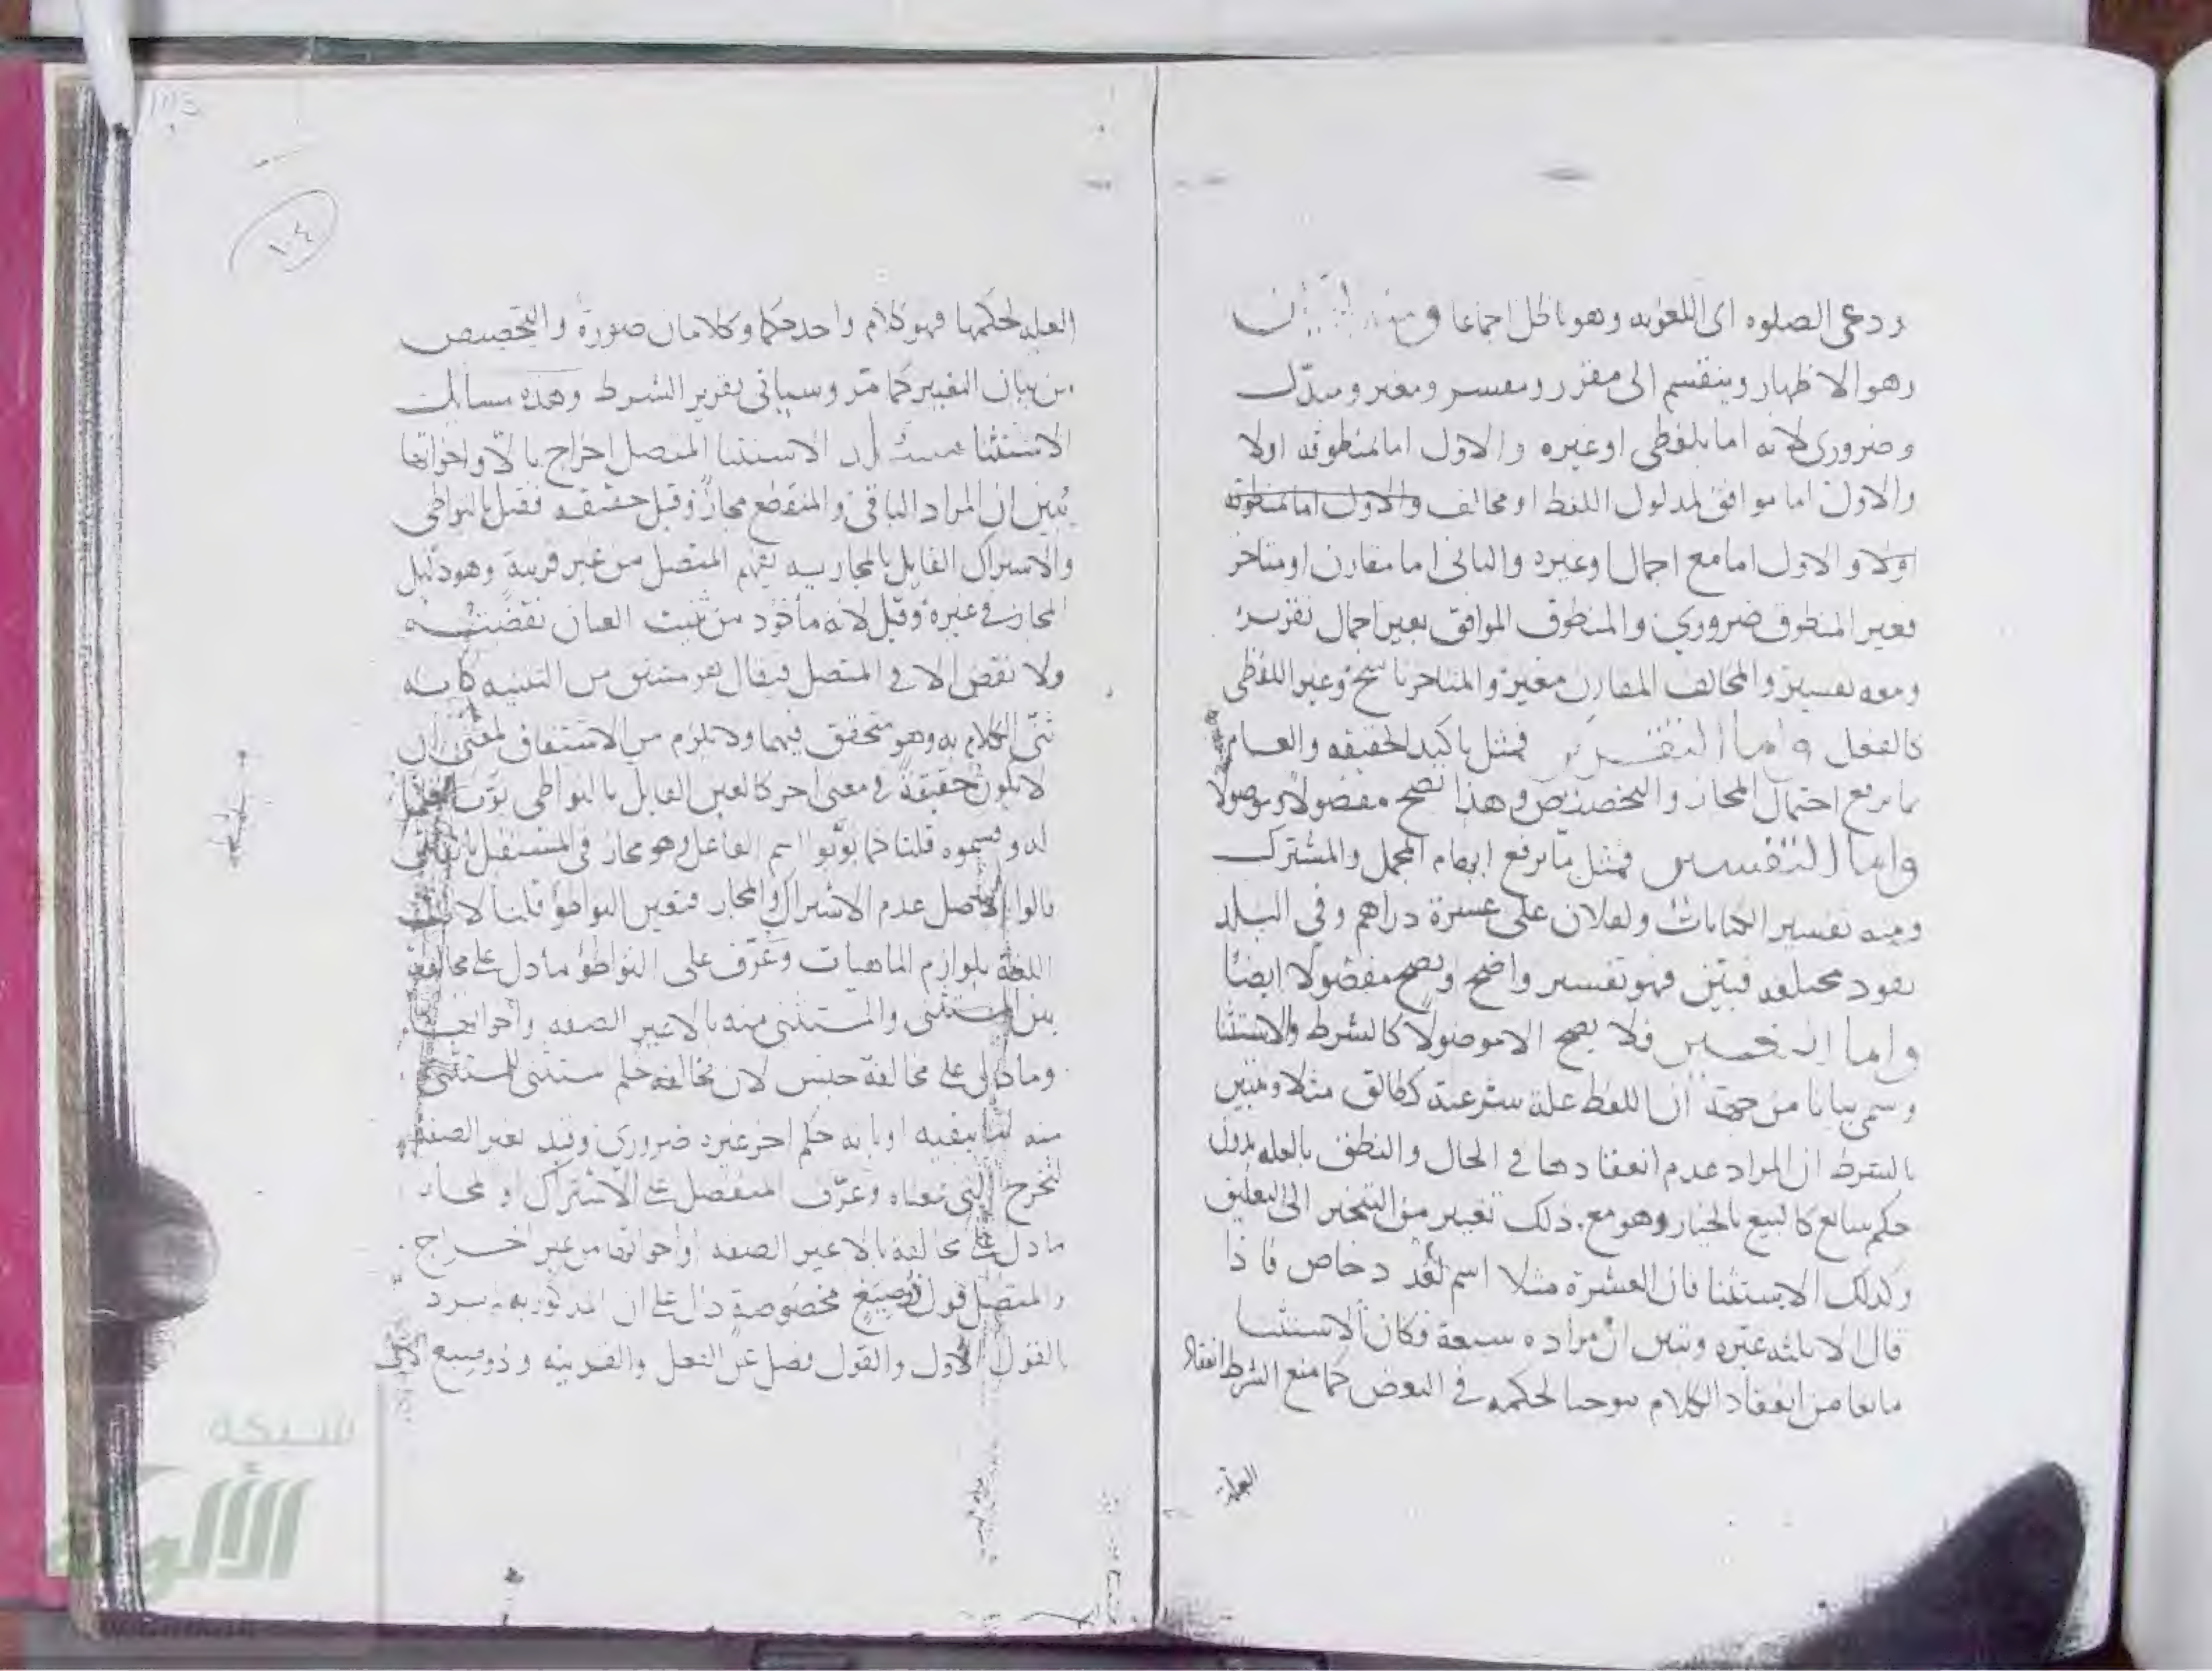 ودعى الصلوه اى اللغويه وهو باطل اجماعا
وهو الاظهار وينقسم الى مقرر ومفسر ومغير ومبدل
وضرورى لانه اما بلفظى او غيره والاول اما بمنطوقه اولا
والاول اما موافق لمدلول اللفظ او مخالف والاول اما بمنطوقه
اولا والاول اما مع اجمال او غيره والثانى اما مقارن او متاخر
فغير المنطوق ضرورى والمنطوق الموافق بغير اجمال تقرير
ومعه تفسير والمخالف المقارن مغير والمتاخر ناسخ وغير اللفظى
كالفعل واما التقرير فمثل تاكيد الحقيقه والعام
بما يرفع احتمال المجاز والتخصيص وهذا يصح مفصولا وموصولا
واما التفسير فمثل ما يرفع ابهام المجمل والمشترك
ومنه تفسير الكنايات ولفلان على عشرة دراهم وفى البلد
نقود مختلفه فبين فهو تفسير واضح ويصح مفصولا ايضا
واما فلا يصح الا موصولا كالشرط والاستثنا
وسمى بيانا من جهة ان اللفظ علة شرعية كطالق مثلا وتبين
بالشرط ان المراد عدم انعقادها فى الحال والنطق بالعله بدون
حكم سائع كالبيع بالخيار وهو مع ذلك تغيير من التنجيز الى التعليق
وكذلك الاستثنا فان العشرة مثلا اسم لعدد خاص فاذا
قال الا ثلثه غيره وتبين ان مراده سبعة فكان الاستثنا
مانعا من انعقاد الكلام موجبا لحكمه فى البعض كما منع الشرط انعقاد
العلة
١٠٤
العله لحكمها فهو كلام واحد حكما وكلامان صورة والتخصيص
من بيان التغيير كما مر وسياتى تقرير الشرط وهذه مسائل
الاستثنا الاستثنا المتصل اخراج بالا واخواتها
يبين ان المراد الباقى والمنقطع مجاز وقيل حقيقه فقيل بالتواطى
والاشتراك القايل بالمجازيه لفهم المتصل من غير قرينة وهو دليل
المجاز فى غيره وقيل لانه ماخوذ من ثنيت العنان نقضته
ولا نقض الا فى المتصل فيقال بل مشتق من التثنيه كانه
ثنى الكلام به وهو متحقق فيهما ولا يلزم من الاشتقاق لمعنى ان
لا يكون حقيقة فى معنى اخر كالعين القايل بالتواطى
له وقسموه قلنا كما بوبوا اسم الفاعل وهو مجاز فى المستقبل
قالوا الاصل عدم الاشتراك والمجاز فتعين التواطؤ قلنا لا تثبت
اللغة بلوازم الماهيات وعرف على التواطؤ ما دل على مخالفة
بين المستثنى والمستثنى منه بالا غير الصفه واخواتها
وما دل على مخالفة جنس لان مخالفة حكم مستثنى للمستثنى
منه بنفيه او بانه حكم اخر غيره ضرورى وقيد بغير الصفة
لتخرج التى نعتاه وعرف المنفصل على الاشتراك او مجاز
ما دل على مخالفة بالا غير الصفه او اخواتها من غير اخراج
والمتصل قول ذو صيغ مخصوصة دال على ان المذكور به لم يرد
بالقول الاول والقول فصل عن الفعل والقرينه وذو صيغ
شبكة
الألوكة